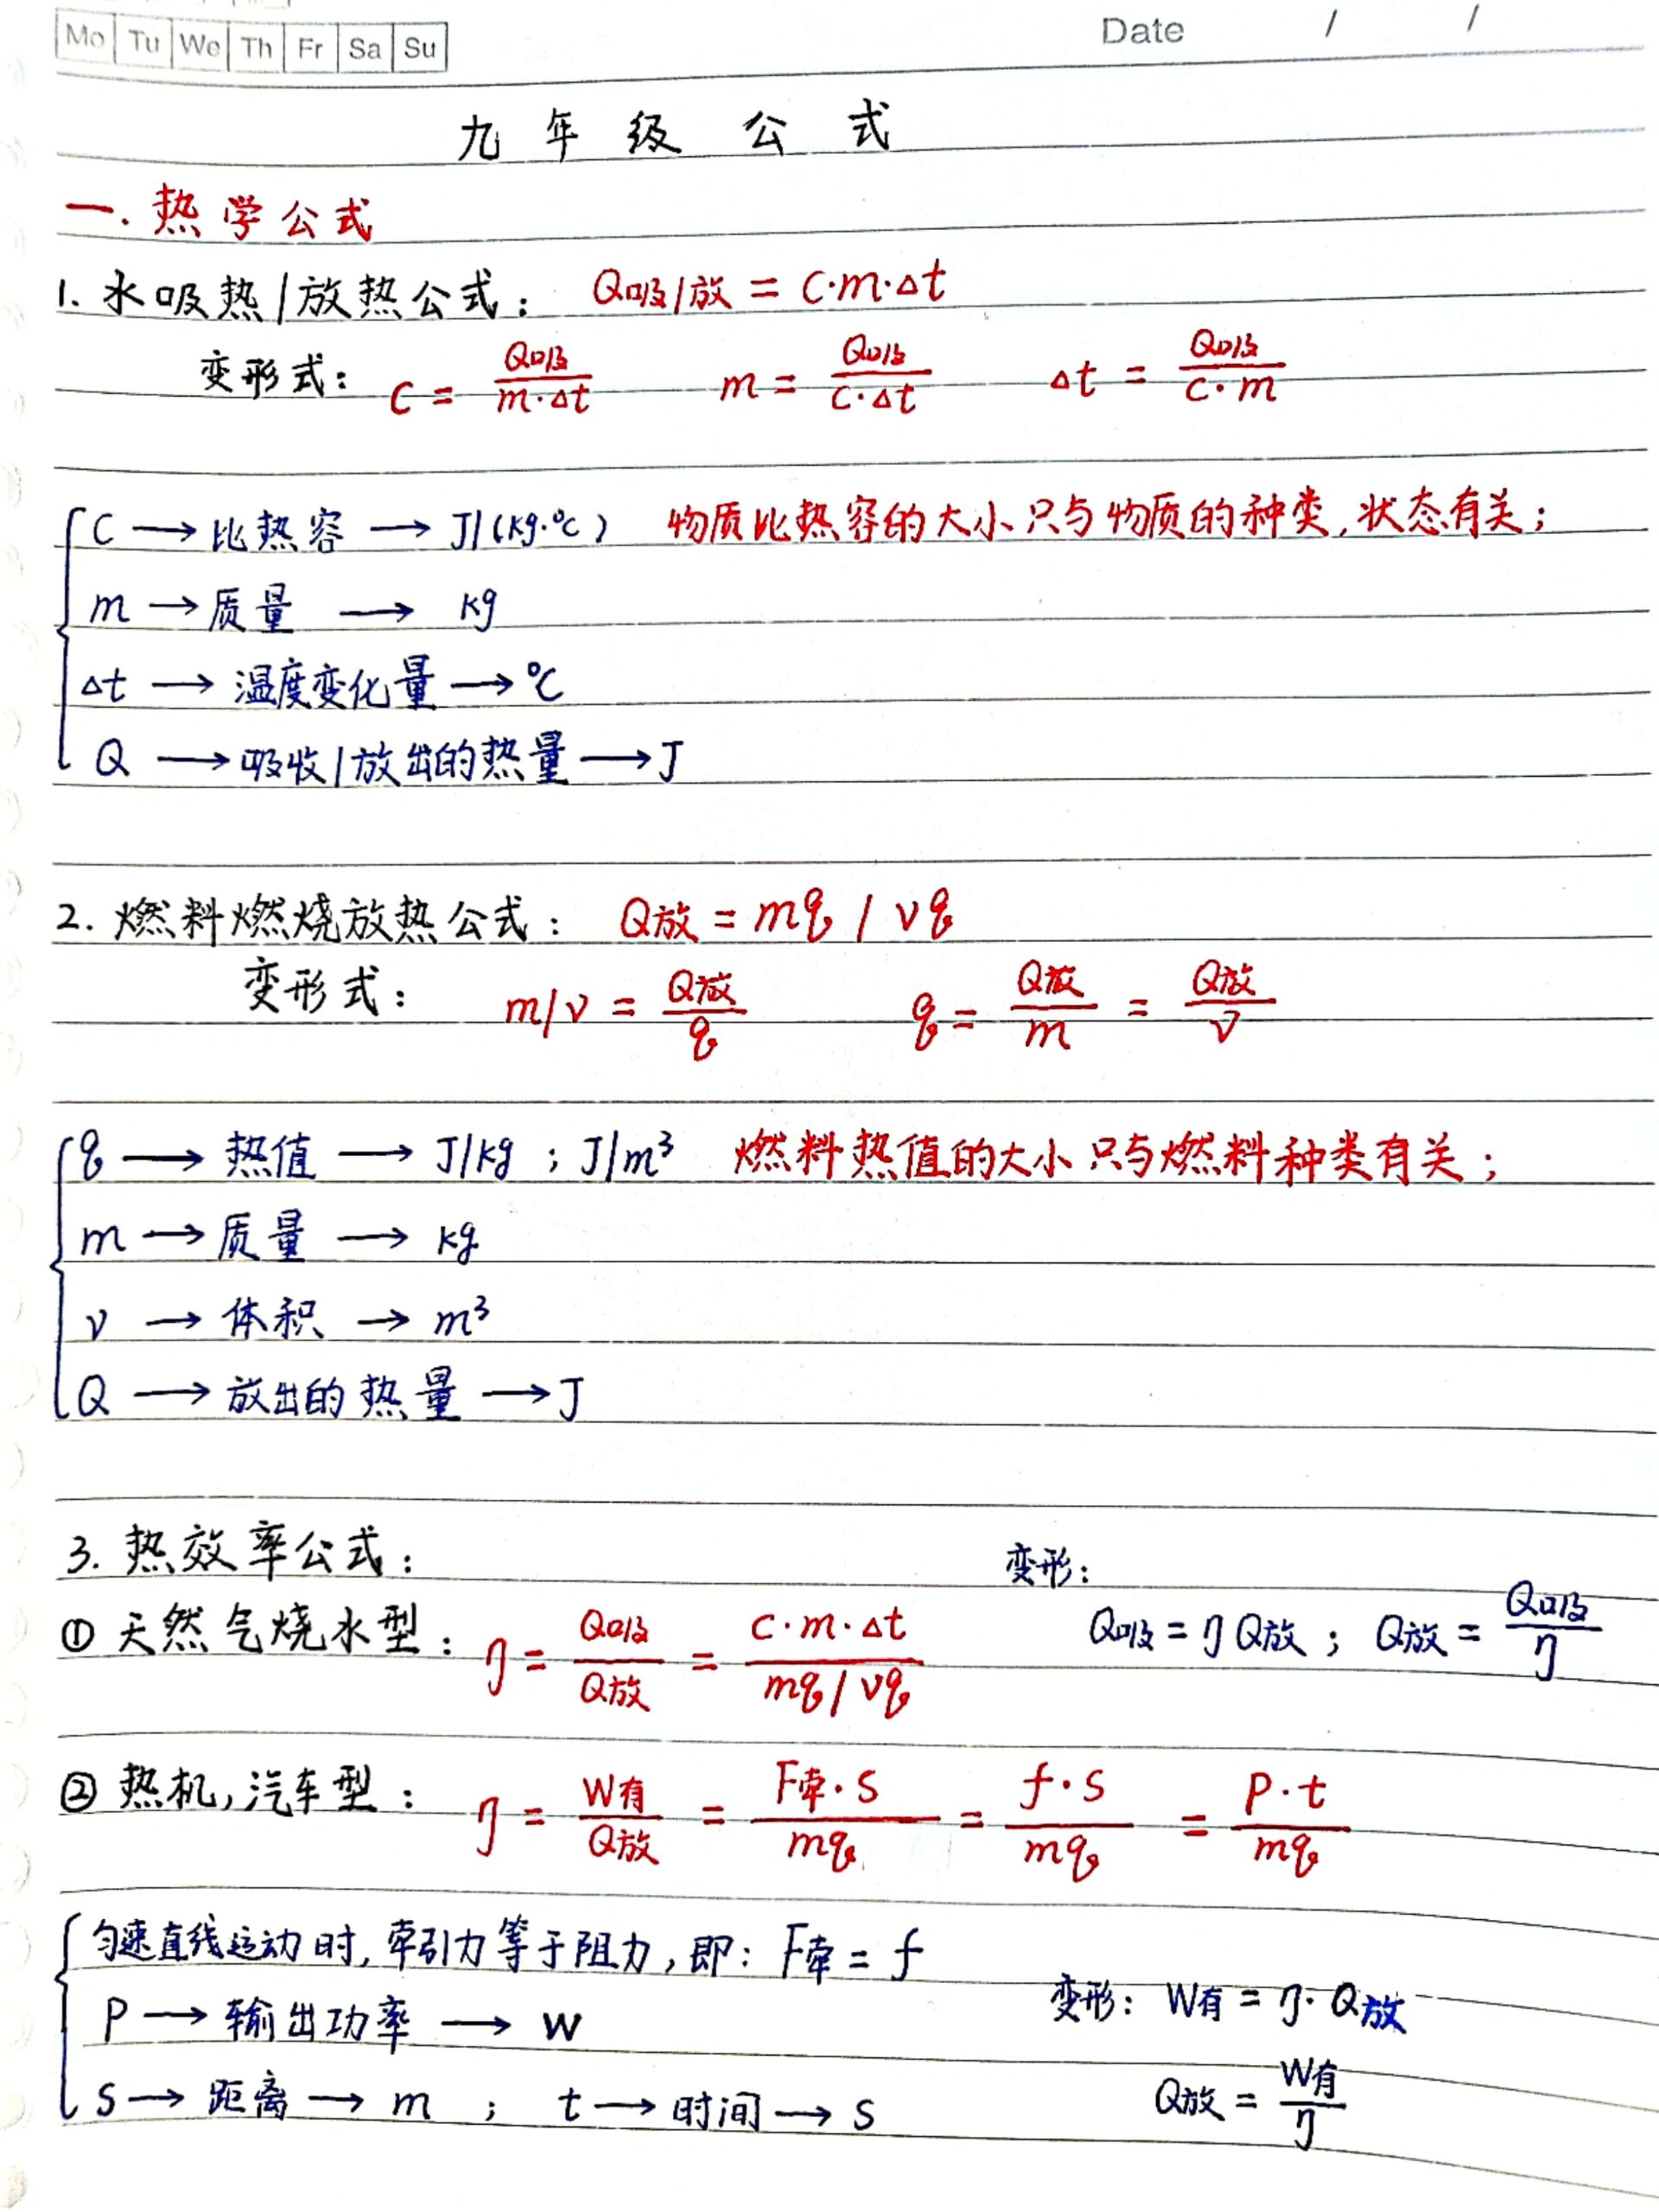 Mo Tu We Th Fr Sa Su Date / /
九年级公式
一. 热学公式
1. 水吸热/放热公式: Q吸/放 = C·m·Δt
变形式: C = Q吸/(m·Δt) m = Q吸/(C·Δt) Δt = Q吸/(C·m)
C → 比热容 → J/(kg·℃) 物质比热容的大小只与物质的种类,状态有关;
m → 质量 → kg
Δt → 温度变化量 → ℃
Q → 吸收/放出的热量 → J
2. 燃料燃烧放热公式: Q放 = mq / vq
变形式: m/v = Q放/q q = Q放/m = Q放/v
q → 热值 → J/kg ; J/m³ 燃料热值的大小只与燃料种类有关;
m → 质量 → kg
v → 体积 → m³
Q → 放出的热量 → J
3. 热效率公式: 变形:
① 天然气烧水型: η = Q吸/Q放 = (C·m·Δt)/(mq/vq) Q吸 = ηQ放 ; Q放 = Q吸/η
② 热机,汽车型: η = W有/Q放 = (F牵·S)/(mq) = (f·S)/(mq) = (P·t)/(mq)
匀速直线运动时,牵引力等于阻力,即: F牵 = f
P → 输出功率 → W 变形: W有 = η·Q放
S → 距离 → m ; t → 时间 → S Q放 = W有/η